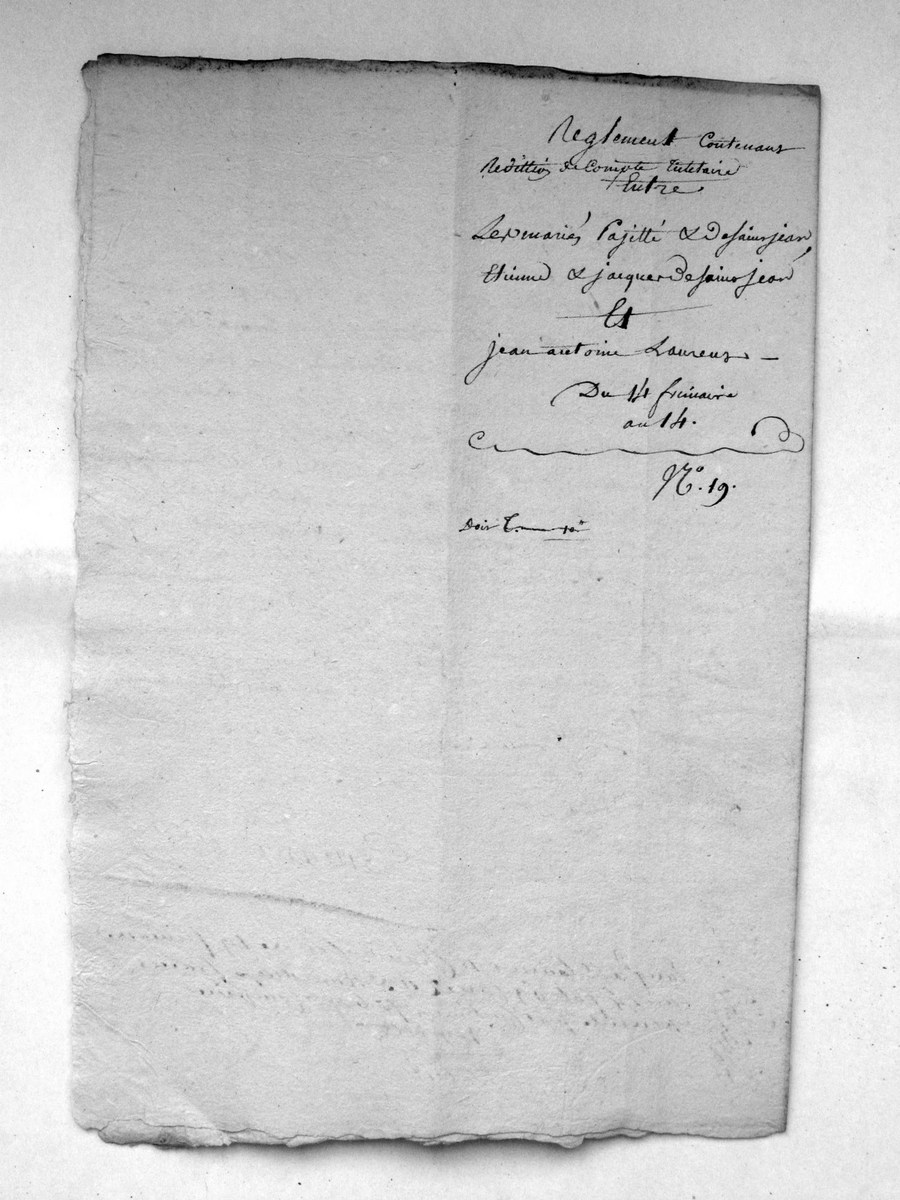 Reglement Contenant
Redition de Compte tutelaire
Entre
Les mariés Pajitte & Desaintjean,
Etienne & jacques Desaintjean
Et
jean antoine Laurens
Du 14 frimaire
an 14.
N.° 19.
Doit